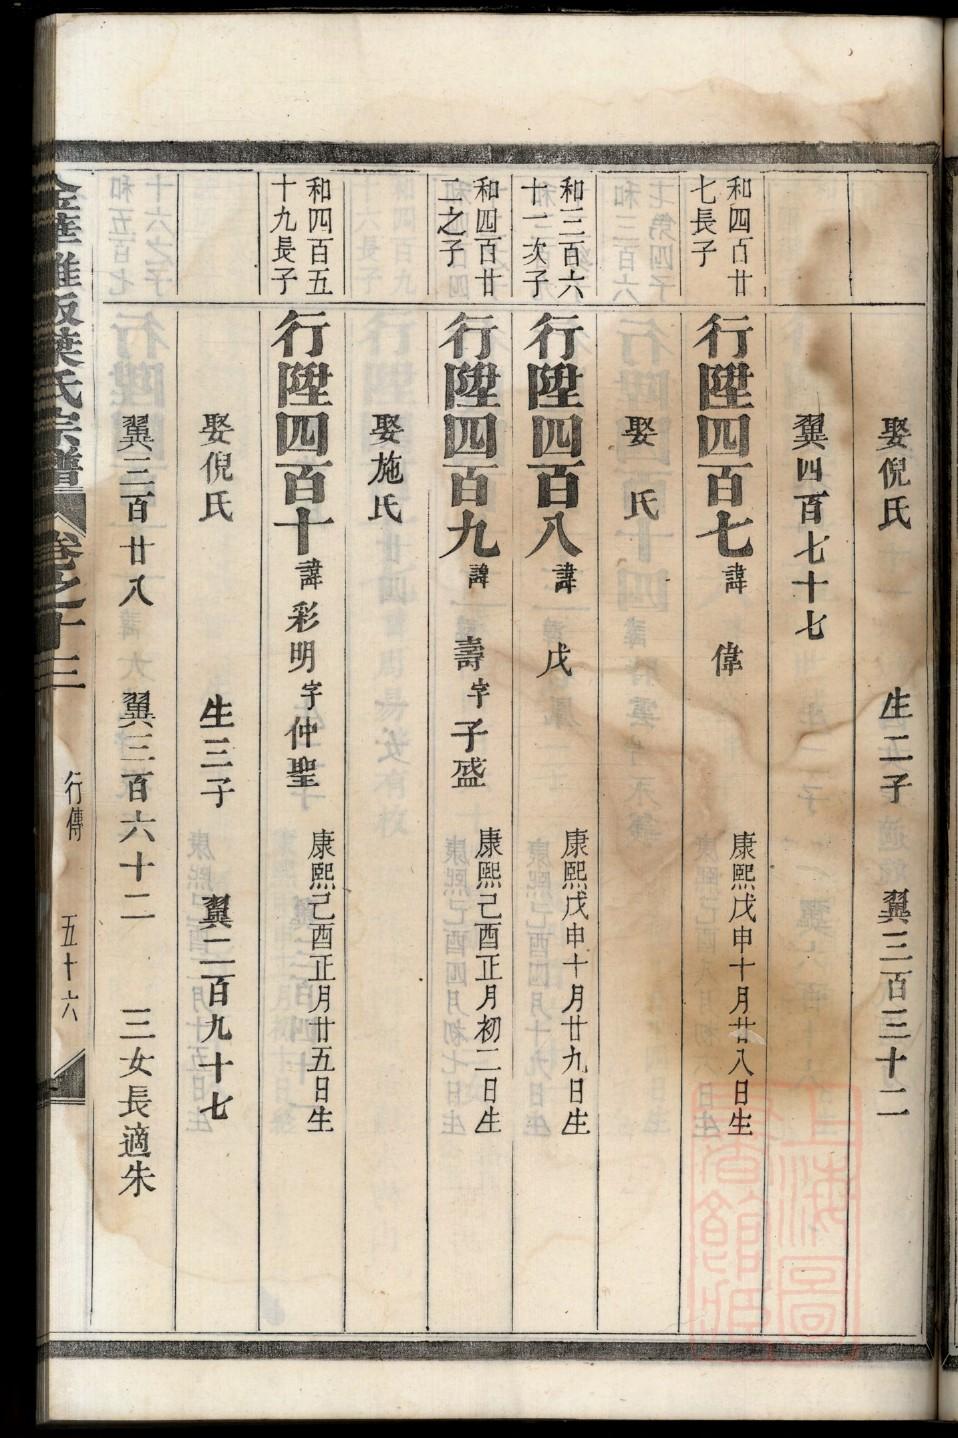 娶倪氏 生二子 翼三百三十二
翼四百七十七
和四百廿七長子
行陞四百七 諱 偉 康熙戊申十月廿八日生
娶 氏
和三百六十一次子
行陞四百八 諱 戊 康熙戊申十月廿九日生
和四百廿二之子
行陞四百九 諱 壽 字 子盛 康熙己酉正月初二日生
娶施氏
和四百五十九長子
行陞四百十 諱 彩明 字 仲聖 康熙己酉正月廿五日生
娶倪氏 生三子 翼二百九十七
翼三百廿八 翼三百六十二 三女長適朱
金華 版葉氏宗譜 卷之十三 行傳 五十六
上海圖